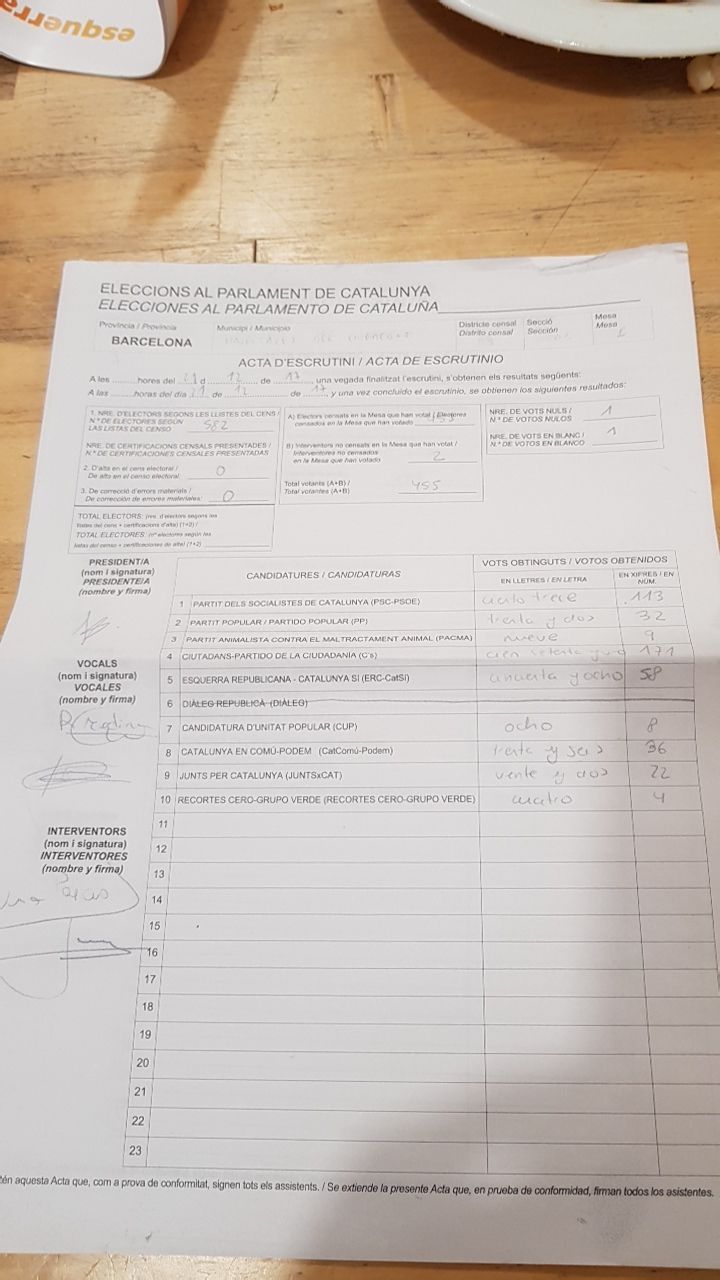 esquerra
ELECCIONS AL PARLAMENT DE CATALUNYA
ELECCIONES AL PARLAMENTO DE CATALUÑA
Província / Provincia
Municipi / Municipio
Districte censal
Distrito censal
Secció
Sección
Mesa
Mesa
BARCELONA
1
ACTA D'ESCRUTINI / ACTA DE ESCRUTINIO
A les ........ hores del 21 d 12 de 17 una vegada finalitzat l'escrutini, s'obtenen els resultats següents:
A las ........ horas del día 21 de 12 de 17, y una vez concluido el escrutinio, se obtienen los siguientes resultados:
1. NRE. D'ELECTORS SEGONS LES LLISTES DEL CENS /
N.º DE ELECTORES SEGÚN
LAS LISTAS DEL CENSO 582
NRE. DE CERTIFICACIONS CENSALS PRESENTADES /
N.º DE CERTIFICACIONES CENSALES PRESENTADAS
2. D'alta en el cens electoral /
De alta en el censo electoral: 0
3. De correcció d'errors materials /
De corrección de errores materiales: 0
TOTAL ELECTORS: (nre. d'electors segons les
llistes del cens + certificacions d'alta) (1+2) /
TOTAL ELECTORES: (nº electores según las
listas del censo + certificaciones de alta) (1+2)
A) Electors censats en la Mesa que han votat / Electores
censados en la Mesa que han votado 453
B) Interventors no censats en la Mesa que han votat /
Interventores no censados
en la Mesa que han votado 2
Total votants (A+B) /
Total votantes (A+B) 455
NRE. DE VOTS NULS /
N.º DE VOTOS NULOS 1
NRE. DE VOTS EN BLANC /
N.º DE VOTOS EN BLANCO 1
PRESIDENT/A
(nom i signatura)
PRESIDENTE/A
(nombre y firma)
VOCALS
(nom i signatura)
VOCALES
(nombre y firma)
INTERVENTORS
(nom i signatura)
INTERVENTORES
(nombre y firma)
CANDIDATURES / CANDIDATURAS
VOTS OBTINGUTS / VOTOS OBTENIDOS
EN LLETRES / EN LETRA
EN XIFRES / EN NÚM.
1 PARTIT DELS SOCIALISTES DE CATALUNYA (PSC-PSOE) ciento trece 113
2 PARTIT POPULAR / PARTIDO POPULAR (PP) trenta y dos 32
3 PARTIT ANIMALISTA CONTRA EL MALTRACTAMENT ANIMAL (PACMA) nueve 9
4 CIUTADANS-PARTIDO DE LA CIUDADANÍA (C's) cien setenta y uno 171
5 ESQUERRA REPUBLICANA - CATALUNYA SI (ERC-CatSI) cincuenta y ocho 58
6 DIÀLEG REPUBLICÀ (DIÀLEG)
7 CANDIDATURA D'UNITAT POPULAR (CUP) ocho 8
8 CATALUNYA EN COMÚ-PODEM (CatComú-Podem) trenta y seis 36
9 JUNTS PER CATALUNYA (JUNTSxCAT) vente y dos 22
10 RECORTES CERO-GRUPO VERDE (RECORTES CERO-GRUPO VERDE) cuatro 4
11
12
13
14
15
16
17
18
19
20
21
22
23
tén aquesta Acta que, com a prova de conformitat, signen tots els assistents. / Se extiende la presente Acta que, en prueba de conformidad, firman todos los asistentes.